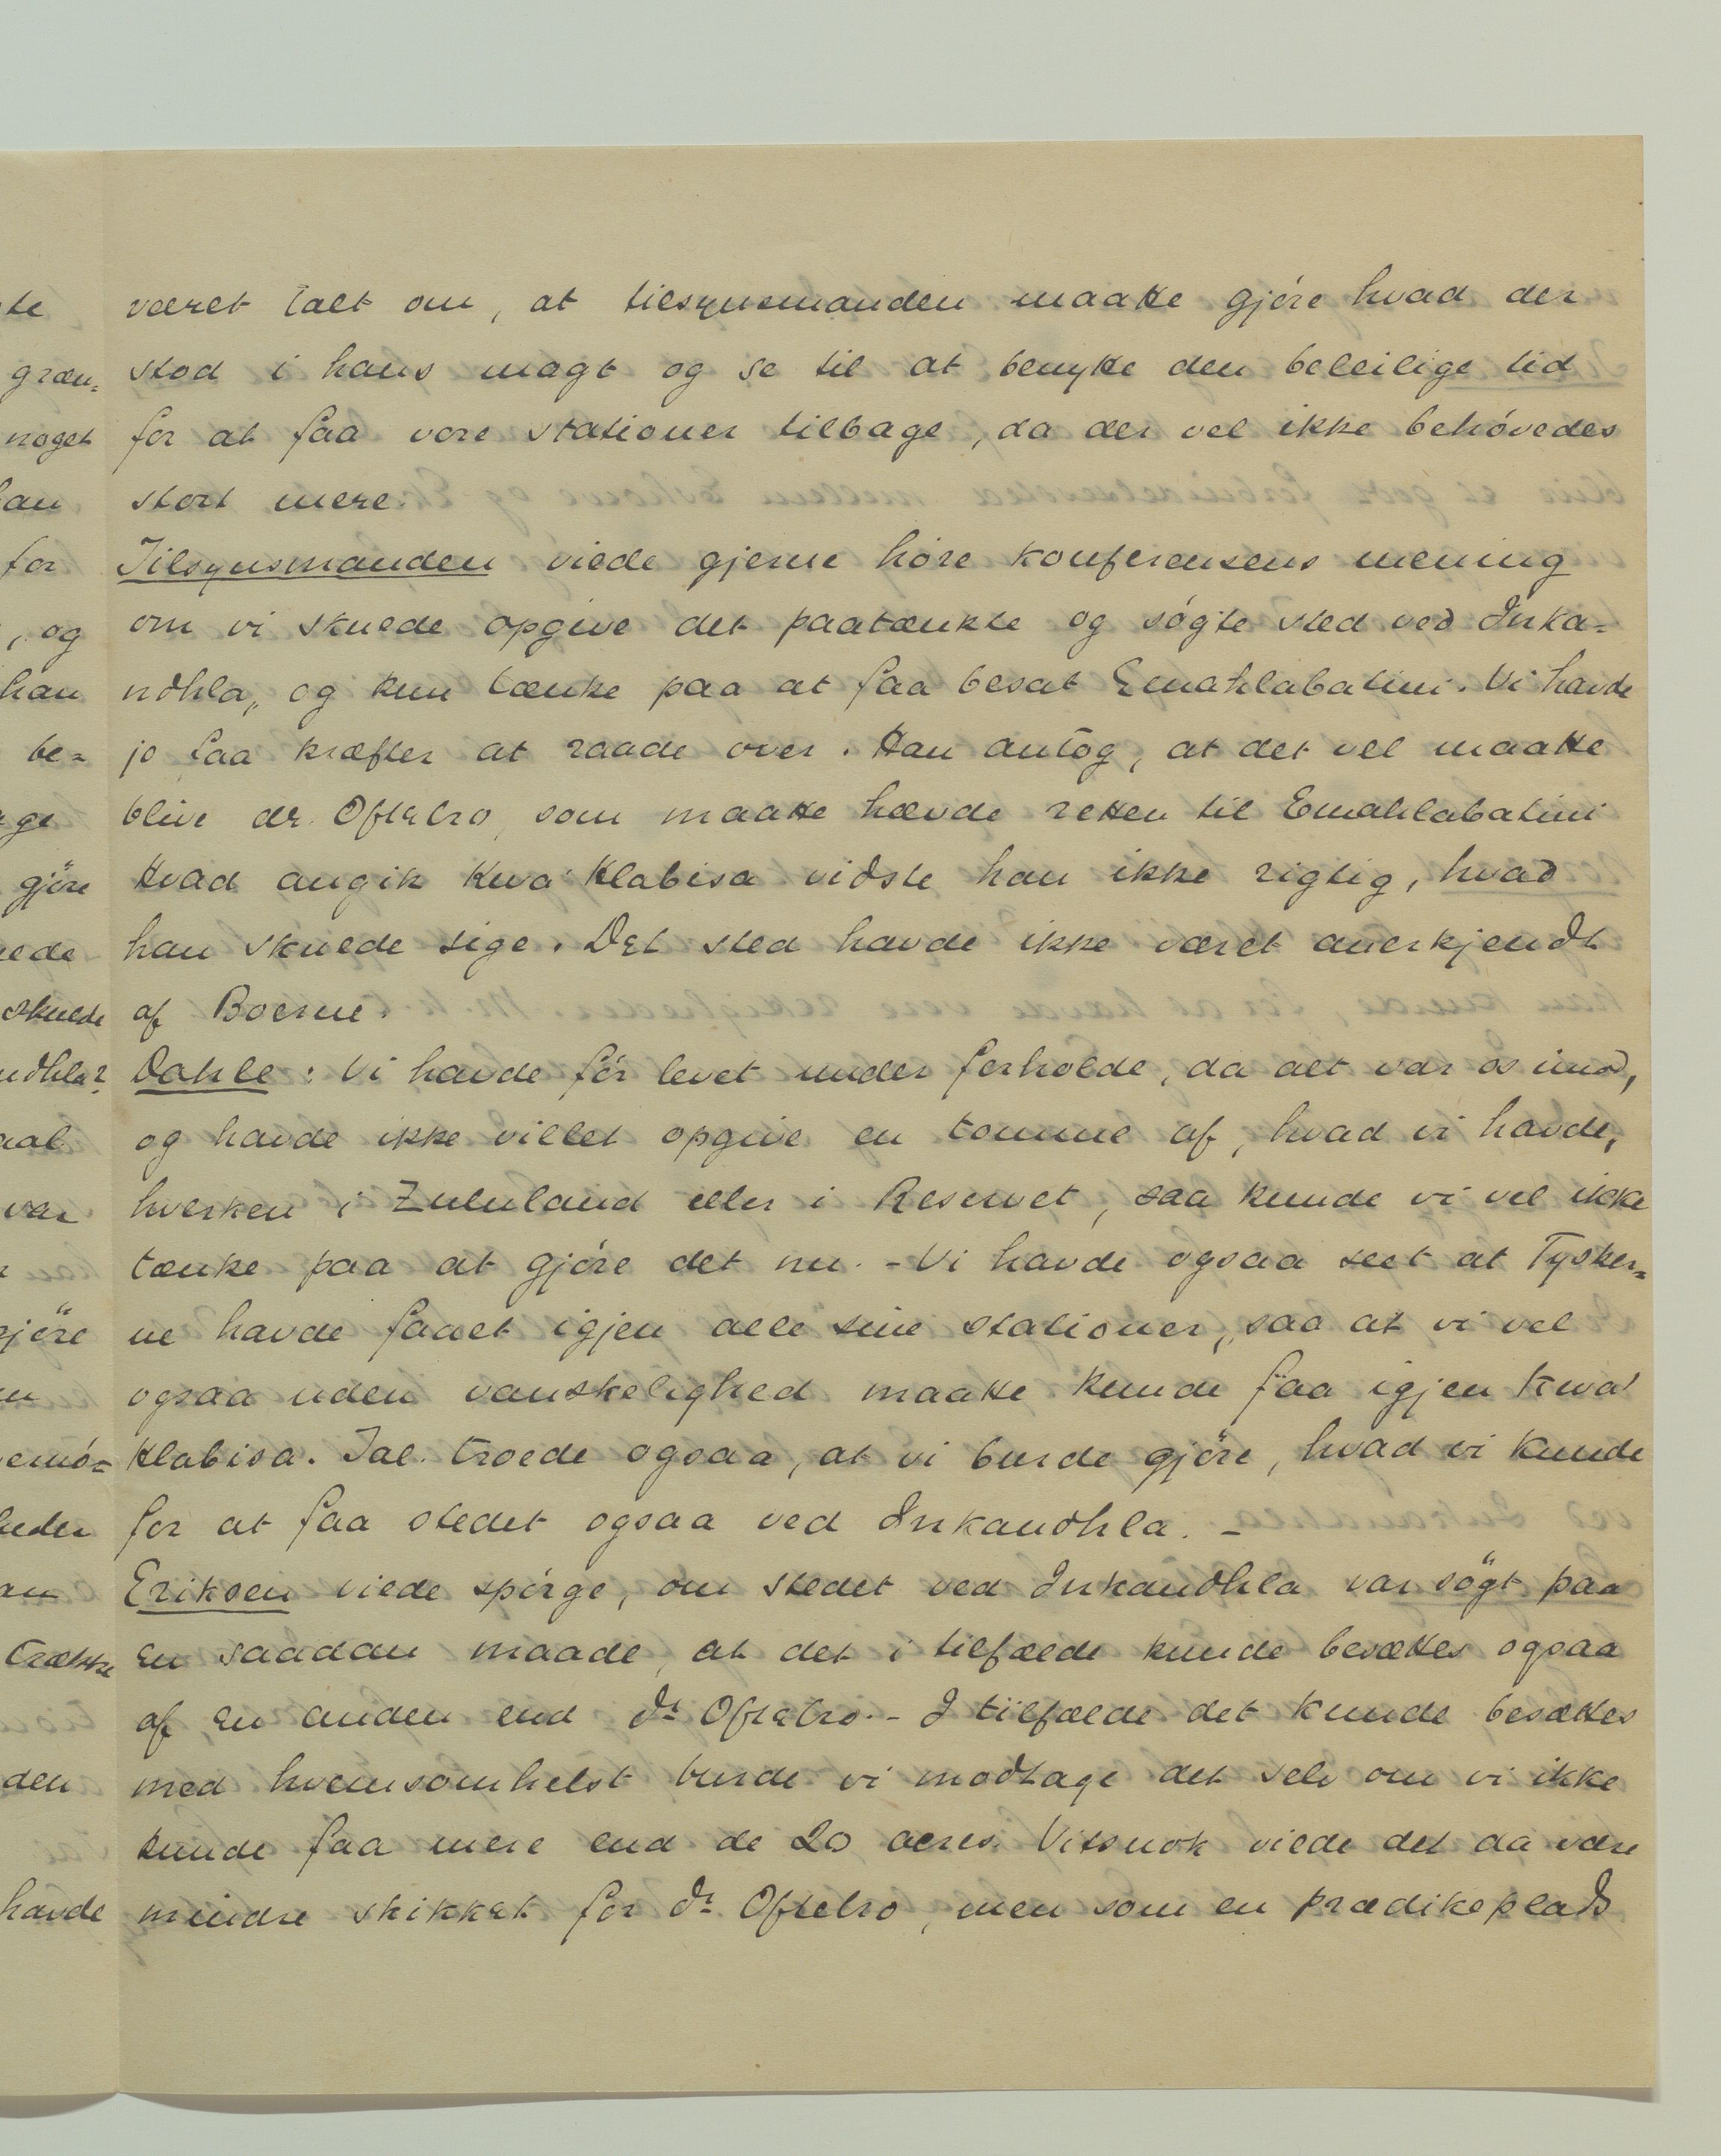 været talt om, at tilsynsmanden maatte gjöre hvad der
stod i hans magt og se til at benytte den beleilige tid
for at faa vore stationer tilbage, da der vel ikke behövedes
stort mere.
Tilsynsmanden vilde gjerne höre konferensens mening
om vi skulde opgive det paatænkte og sögte sted ved Inka=
ndhla, og kun tænke paa at faa besat Emahlabatini. Vi havde
jo faa kræfter at raade over. Han antog, at det vel maatte
blive dr. Oftebro, som maatte hævde retten til Emahlabatini
Hvad angik Kwa' Hlabisa vidste han ikke rigtig, hvad
han skulde sige. Det sted havde ikke været anerkjendt
af Boerne.
Dahle: Vi havde för levet under forholde, da alt var os imod,
og havde ikke villet opgive en tomme af, hvad vi havde,
hverken i Zululand eller i Reservet, saa kunde vi vel ikke
tænke paa at gjöre det nu. - Vi havde ogsaa seet at Tysker=
ne havde faaet igjen alle sine stationer, saa at vi vel
ogsaa uden vanskelighed maatte kunde faa igjen Kwa'
Hlabisa. Tal. troede ogsaa, at vi burde gjöre, hvad vi kunde
for at faa stedet ogsaa ved Inkandhla. -
Eriksen vilde spörge, om stedet ved Inkandhla var sögt paa
en saadan maade, at det i tilfælde kunde besættes ogsaa
af en anden end dr Oftebro. - I tilfælde det kunde besættes
med hvemsomhelst burde vi modtage det selv om vi ikke
kunde faa mere end de 20 acres. Vitsnok vilde det da være
mindre skikket for dr Oftebro, men som en prædikeplads
te
græn=
noget
han
for
, og
han
be=
gjöre
skulde
ndhla?
var
gjöre
trække
den
havde